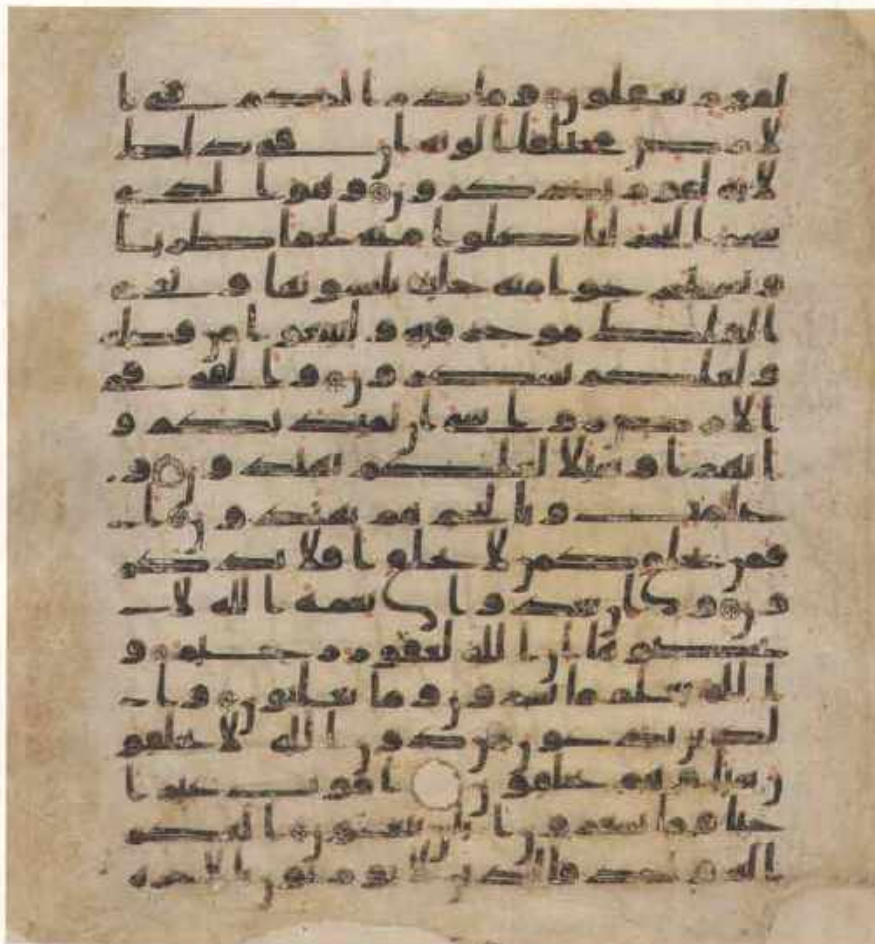 لقوم يعقلون وما ذرا لكم في ا
لارض مختلفا الونه ان في ذلك
لاية لقوم يذكرون وهو الذي
سخر البحر لتاكلوا منه لحما طريا
وتستخرجوا منه حلية تلبسونها وترى
الفلك مواخر فيه ولتبتغوا من فضله
ولعلكم تشكرون والقى في
الارض روسي ان تميد بكم و
انهرا وسبلا لعلكم تهتدون و
علمت وبالنجم هم يهتدون ا
فمن يخلق كمن لا يخلق افلا تذكر
ون وان تعدوا نعمة الله لا
تحصوها ان الله لغفور رحيم و
الله يعلم ما تسرون وما تعلنون وا
لذين يدعون من دون الله لا يخلقو
ن شيا وهم يخلقون اموت غير ا
حيا وما يشعرون ايان يبعثون الهكم
اله وحد فالذين لا يومنون بالاخرة